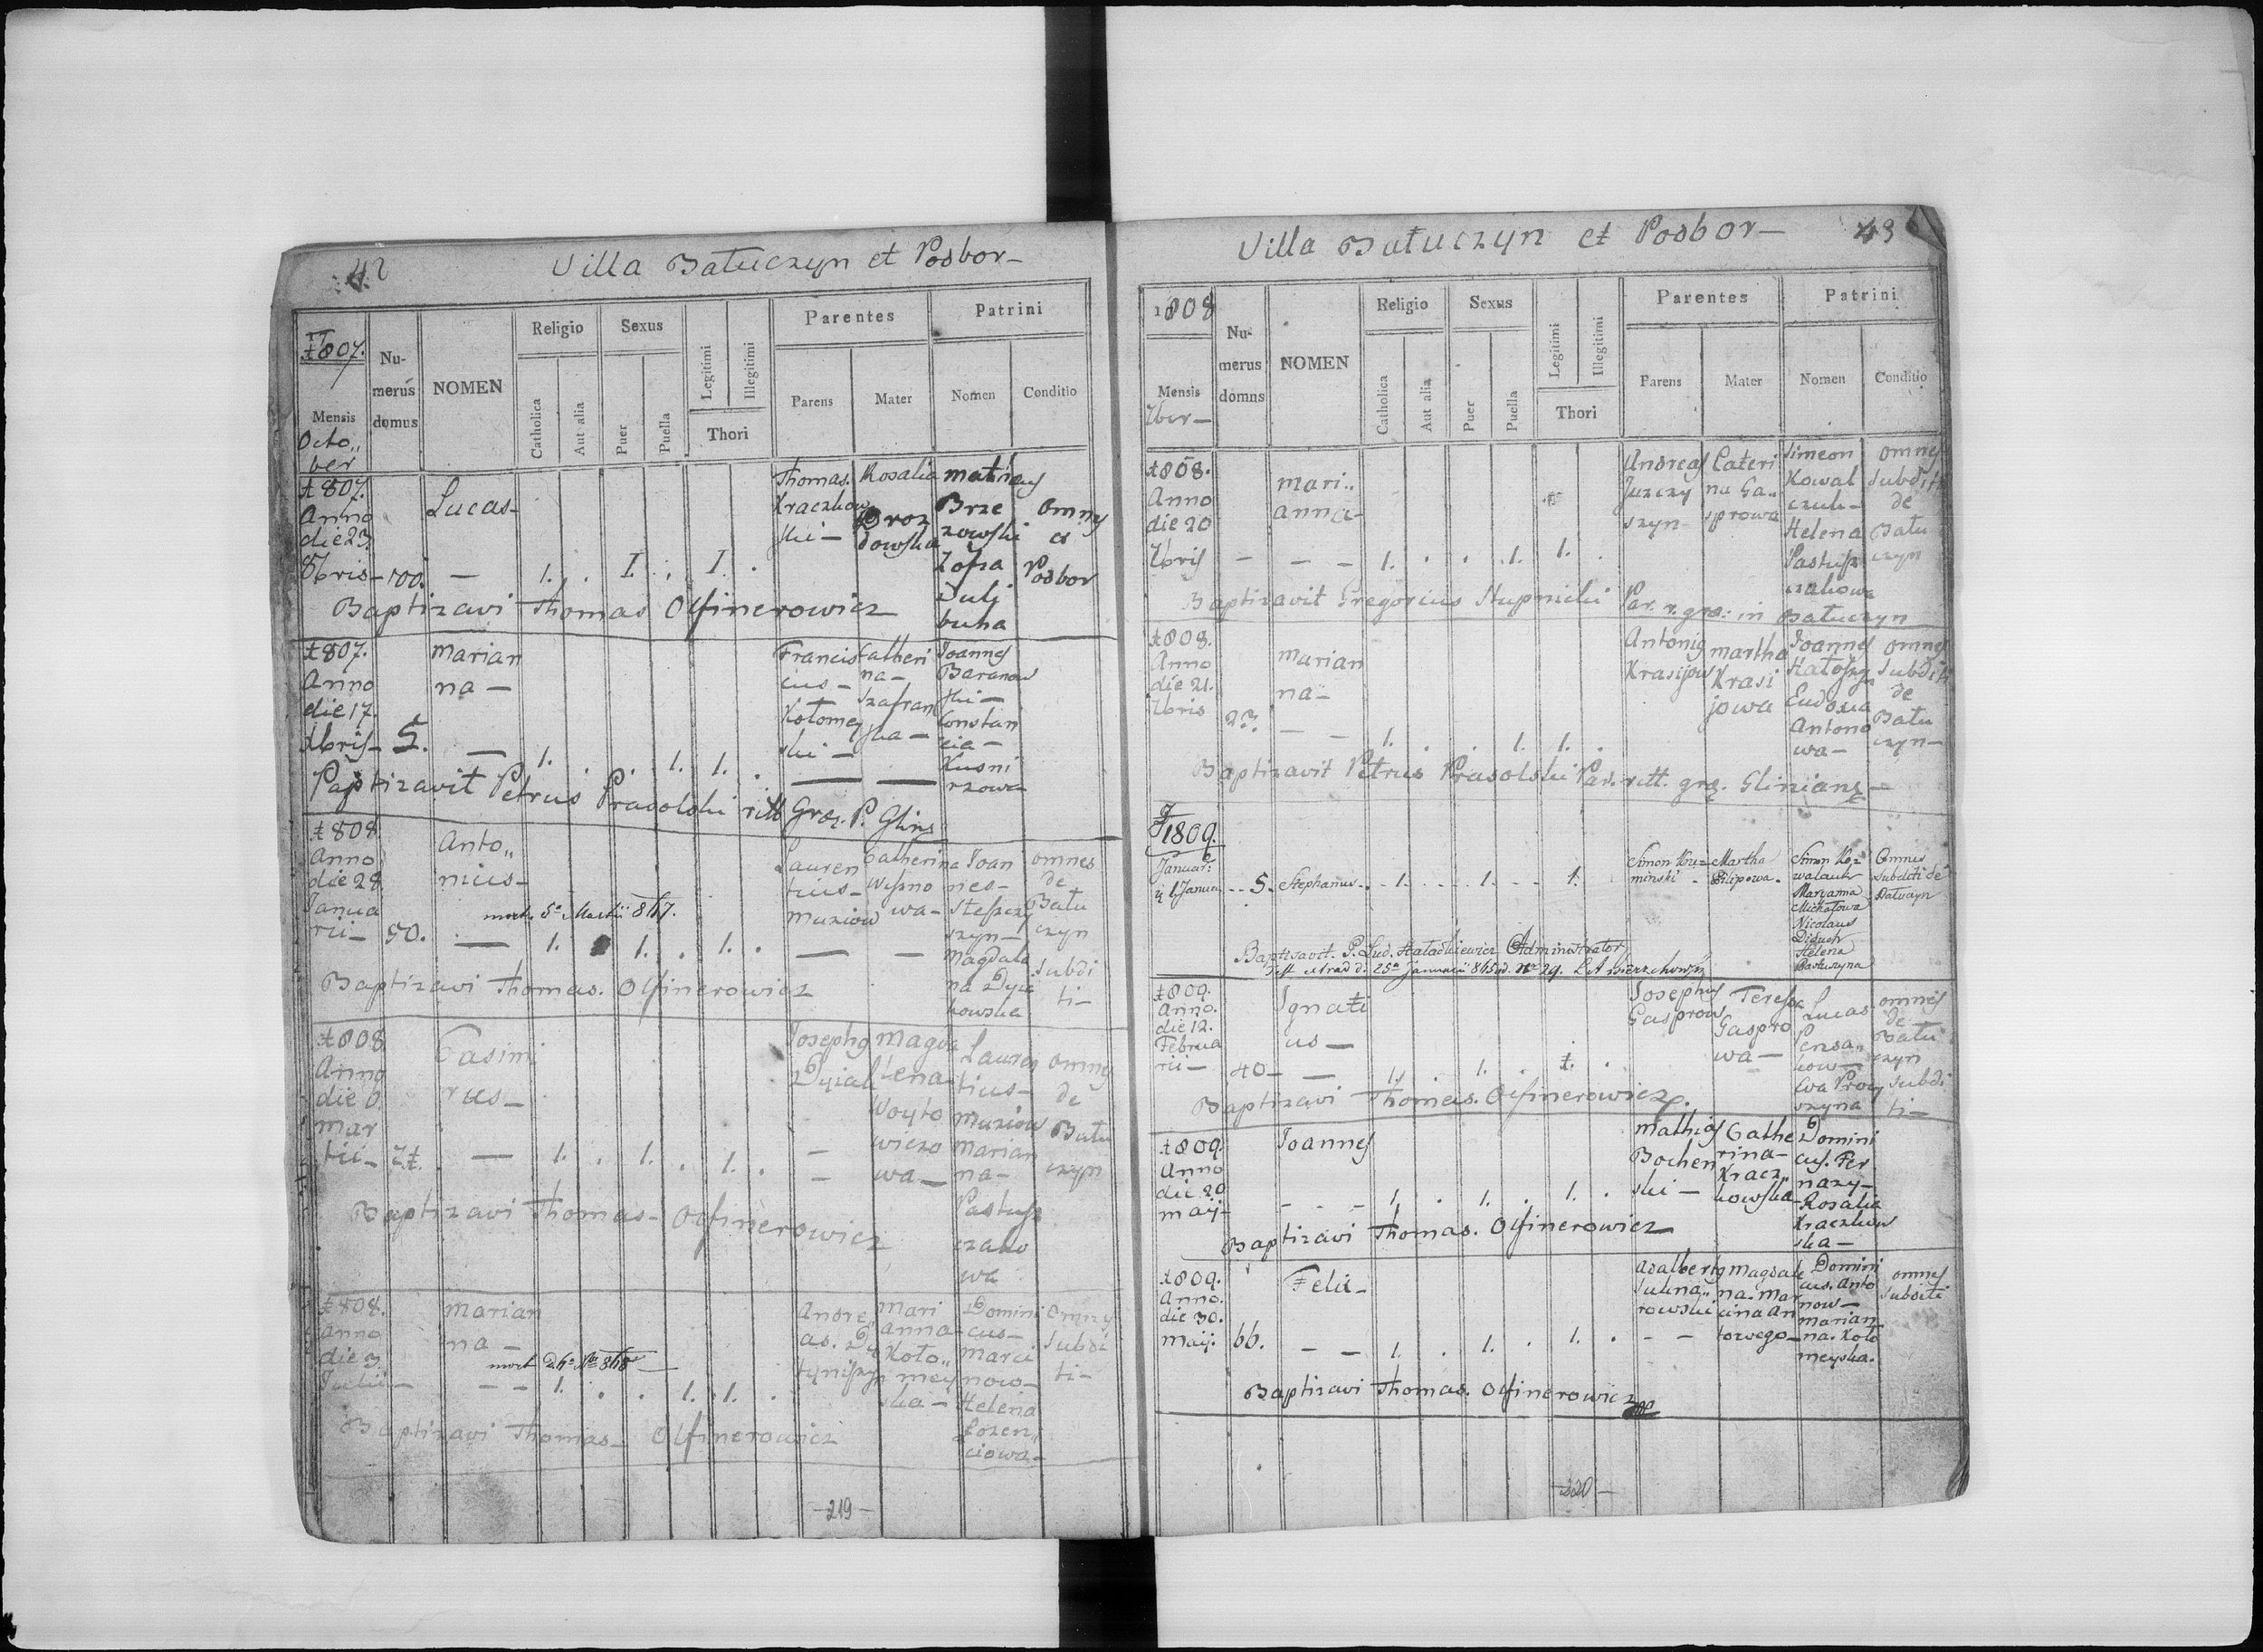 42
Villa Batuczyn et Podbor
1807.
Mensis
Octo,,
ber
Numerus domus
NOMEN
Religio
Catholica
Aut alia
Sexus
Puer
Puella
Legitimi
Illegitimi
Thori
Parentes
Parens
Mater
Patrini
Nomen
Conditio
1807.
Anno
die 23
8bris
100.
Lucas
1. I. I.
Thomas
Kraczkow
ski
Rosalia
Droz
dowska
Brze
zowski
Zofia
Dulj
buha
omnes
Podbor
Baptizavi Thomas Olfinerowicz
1807.
Anno
die 17
Xbris
5.
Marian
na
1. 1. 1.
Francis
cus
Kotomey
ski
Catheri
na
Szafran
ska
Joannes
Baranow
ski
Constan
cia
Kusni
rzowa
Baptizavit Petrus Prasolski ritt Græ. P. Glins
1808
Anno
die 28
Janua
rii
50.
Anto,,
nius
mort. 5ª Martii 847.
1. 1. 1.
Lauren
tius
Muziow
Catherina
Wyszno
wa
Joan
nes
Steszczy
szyn
Magdale
na Dyia
kowska
omnes
de
Batu
czyn
subdi
ti
Baptizavi Thomas. Olfinerowicz
1808
Anno
die 6
Mar
tii
71.
Casimi
rus
1. 1. 1.
Josephg
Dyiak
Magda
lena
Woyto
wiczo
wa
Lauren
tius
Muziow
Marian
na
Pastusz
czako
wa
omnes
de
Batu
czyn
Baptizavi Thomas Olfinerowicz
1808.
Anno
die 3
Julii
Marian
na
1. 1. 1.
Andre,,
as. Dy
tyniszyn
Mari
anna
Koto,,
mey
ska
Domini
cus
Marci
now
Helena
Lozen,,
ciowa
omnes
subdi
ti
Baptizavi Thomas Olfinerowicz
219
43
Villa Batuczyn et Podbor
1808
Mensis
7ber
Numerus domns
NOMEN
Religio
Catholica
Aut alia
Sexus
Puer
Puella
Legitimi
Illegitimi
Thori
Parentes
Parens
Mater
Patrini
Nomen
Conditio
1808.
Anno
die 20
7bris
Mari,,
anna
1. 1. 1.
Andreas
Juzczy
szyn
Cateri
na Ga,,
sprowa
Simeon
Kowal
czuk
Helena
Pastusz
czakowa
omnes
subditi
de
Batu
czyn
Baptizavit Gregorius Stupnicki Par. r. græ: in Batuczyn
1808.
Anno
die 21.
7bris
23.
Marian
na
1. 1. 1.
Antonig
Krasijow
Martha
Krasi
jowa
Joannes
Eudoxia
Antono
wa
omnes
subditi
de
Batu
czyn
Baptizavit Petrus Prasolski Par. ritt. græ. Glinianę
1809.
Januar:
5.
Stephanus
1. 1. 1.
Simon Kuz=
minski
Martha
Filipowa
Simon Ko=
walczuk
Maryanna
Michatowa
Nicolaus
Diduch
Helena
Pastuszyna
Omnes
Subditi de
Batuczyn
Baptisavit P. Lud. Hatadkiewicz Administrator
1809.
Anno.
die 12.
Februa
rii
40
Ignati
us
1. 1. 1.
Josephus
Gasprow
Teressa
Gaspro
wa
Lucas
Penza,,
kow
Eva Procy
szyna
omnes
de
Batu
czyn
subdi
ti
Baptizavi Thomas. Olfinerowicz.
1809.
Anno
die 20
Maij
Joannes
1. 1. 1.
Mathias
Bochen
ski
Cathe
rina
Kracz,,
kowska
Domini
cus. Fer
nazy
Rosalia
Kraczkow
ska
Baptizavi Thomas. Olfinerowicz
1809.
Anno.
die 30.
Maij:
66.
Felix
1. 1. 1.
Adalbertg
Sulina,,
rowski
Magdale
na. Mar
cina An
towego
Domini
cus. Anto
now
Marian
na. Koto
meyska.
omnes
subditi
Baptizavi Thomas. Olfinerowicz
220